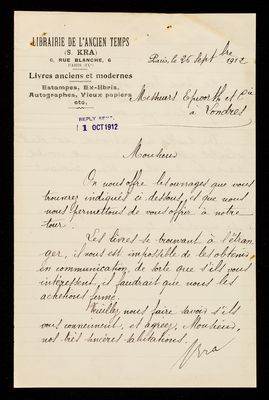 LIBRAIRIE DE L'ANCIEN TEMPS
(S. KRA)
6, RUE BLANCHE, 6
PARIS (IXe)
Livres anciens et modernes
Estampes, Ex-libris,
Autographes, Vieux papiers
etc.
Paris, le 26 septbre 1912
REPLY SENT.
1 OCT 1912
Messieurs Epworth et Cie
à Londres
Monsieur
On nous offre les ouvrages que vous
trouverez indiqués ci dessous, et que nous
nous permettons de vous offrir à notre
tour.
Les livres se trouvant à l'étran
ger, il nous est impossible de les obtenir
en communication, de sorte que s'ils vous
intéressent, il faudrait que nous les
achetions ferme.
Veuillez nous faire savoir s'ils
vous conviennent, et agréez, Monsieur,
nos très sincères salutations.
Kra